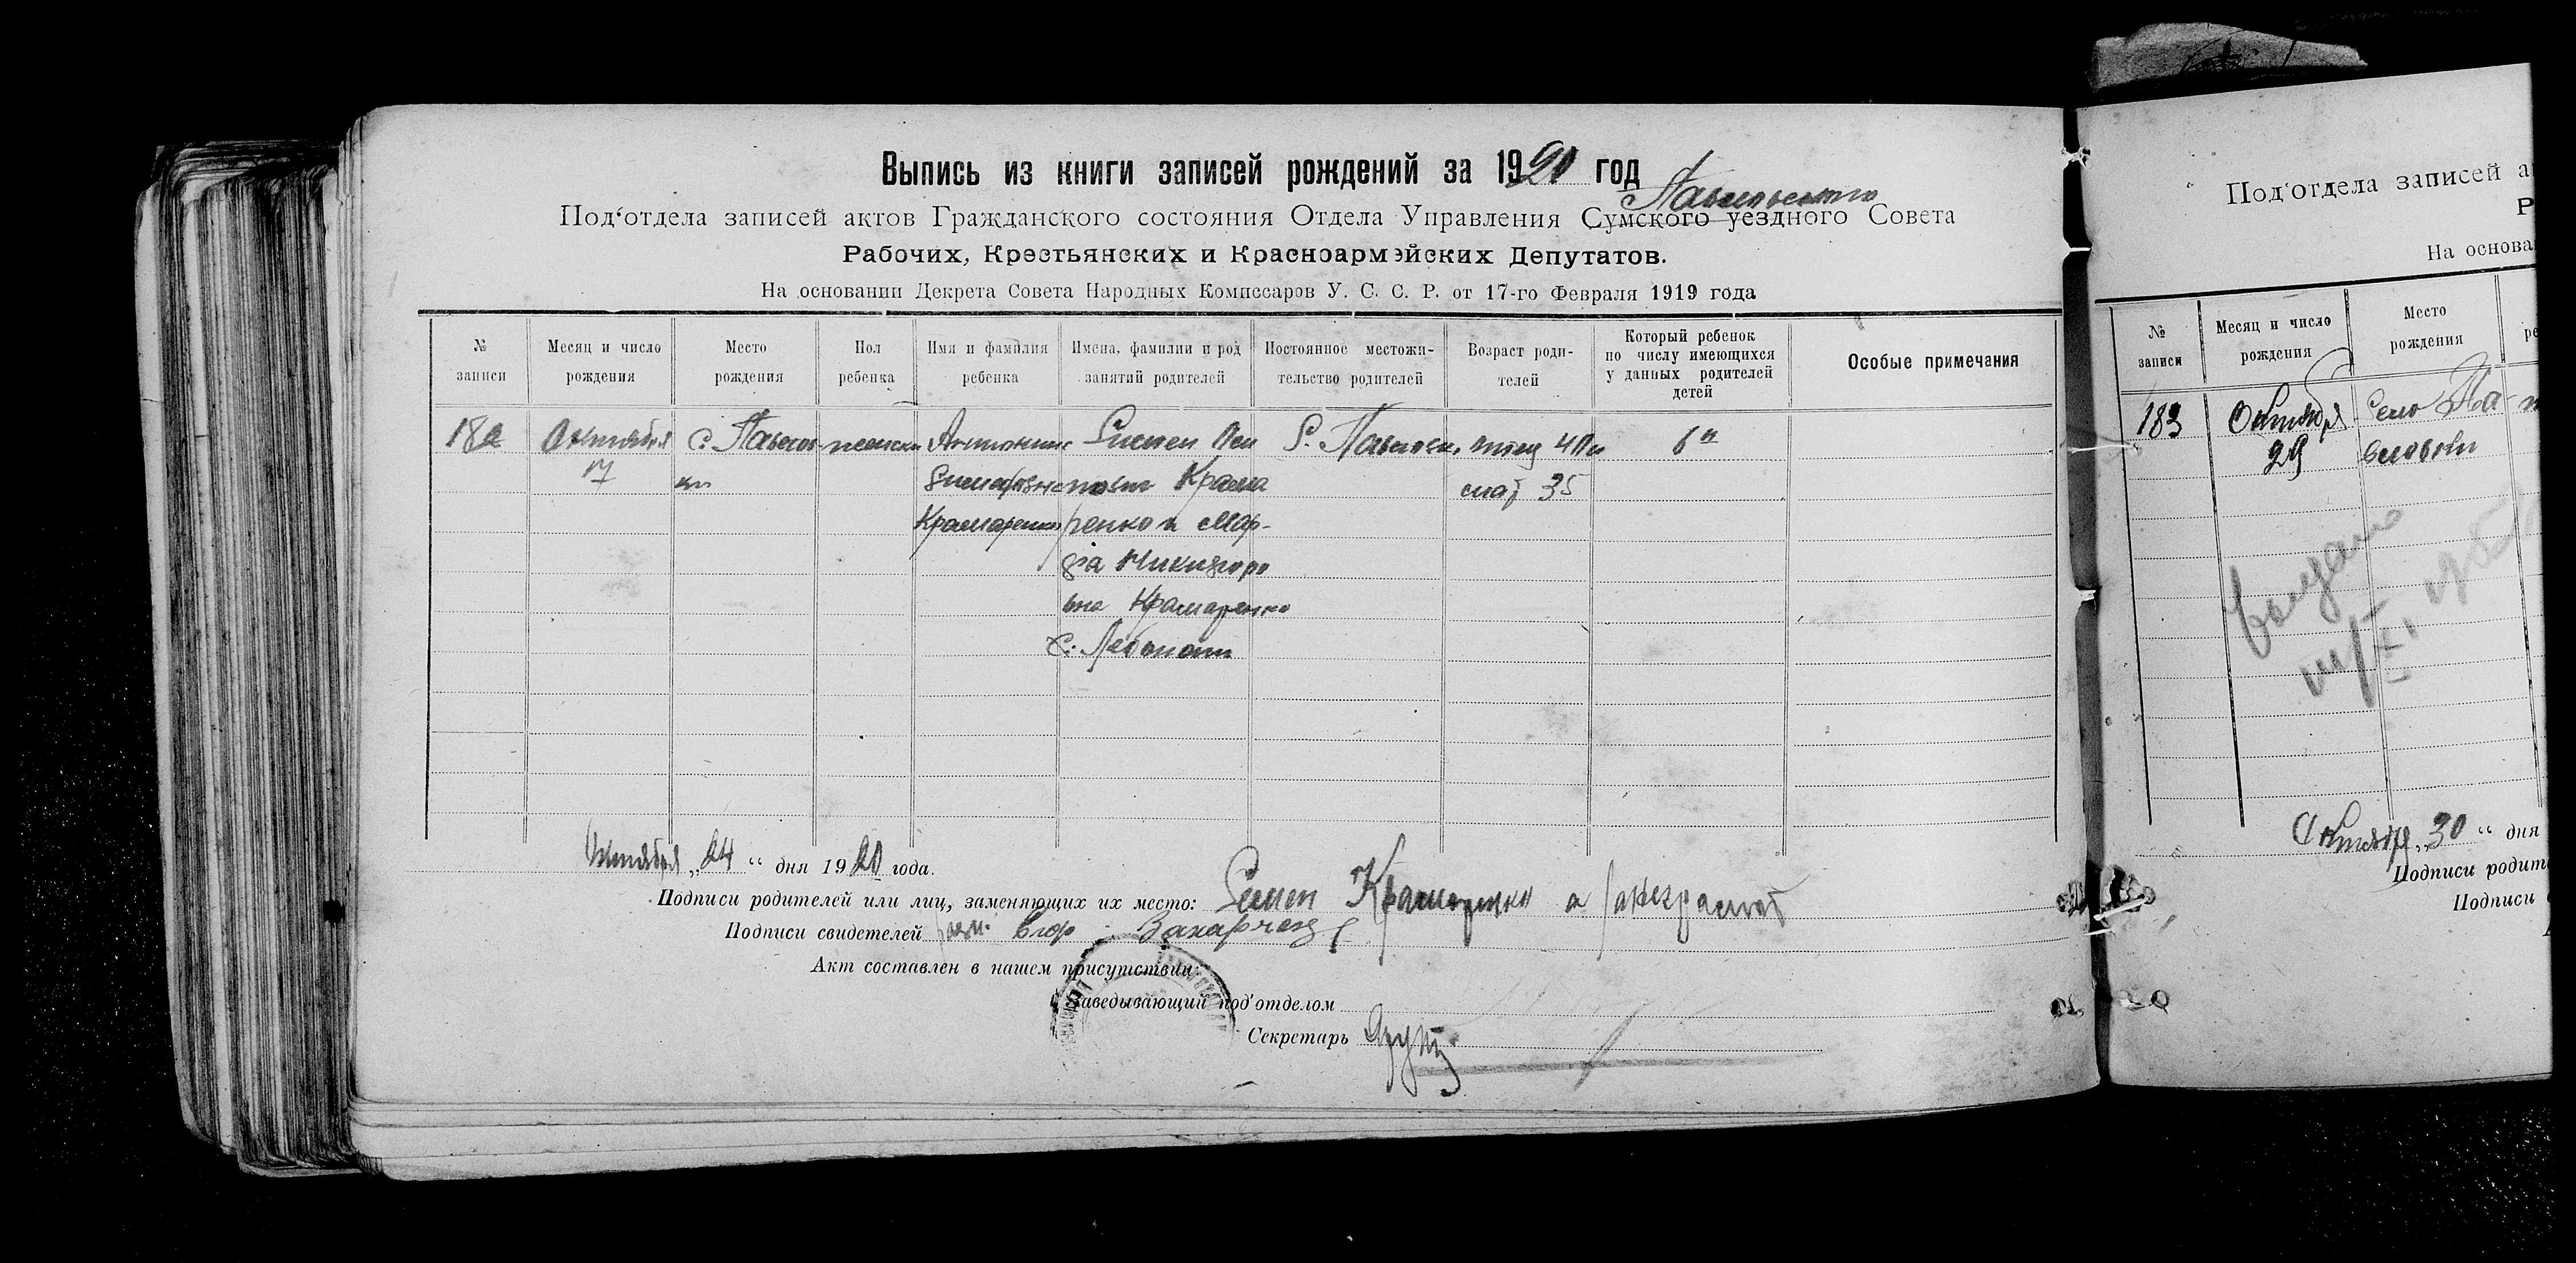 Выпись из книги записей рождений за 1920 год
Павловского
Под‘отдела записей актов Гражданского состояния Отдела Управления Сумского уездного Совета
Рабочих, Крестьянских и Красноармэйских Депутатов.
На основании Декрета Совета Народных Комиссаров У. С. С. Р. от 17-го Февраля 1919 года
№ записи
Месяц и число рождения
Место рождения
Пол ребенка
Имя и фамилия ребенка
Имена, фамилии и род занятий родителей
Постоянное местожительство родителей
Возраст родителей
Который ребенок по числу имеющихся у данных родителей детей
Особые примечания
182
Октября
17
с. Павлов-
ки
женски
Антонина
Крамаренко
Симеон Оси
пович Крама
ренко и Мар-
Никифоро
вна Крамаренко
С. Павловк.
отец 40 л
мат 35
6й
Октября „24“ дня 1920 года.
Подписи родителей или лиц, заменяющих их место: Семен Крамаренко а
Подписи свидетелей
Акт составлен в нашем присутствии:
Заведывающий под‘отделом
Секретарь
Под‘отдела записей а
Р
На основа
№ записи
Месяц и число рождения
Место рождения
183
Октября
29
Село Па-
вловки
выдано
Октября „30“ дня
Подписи родит
Подписи